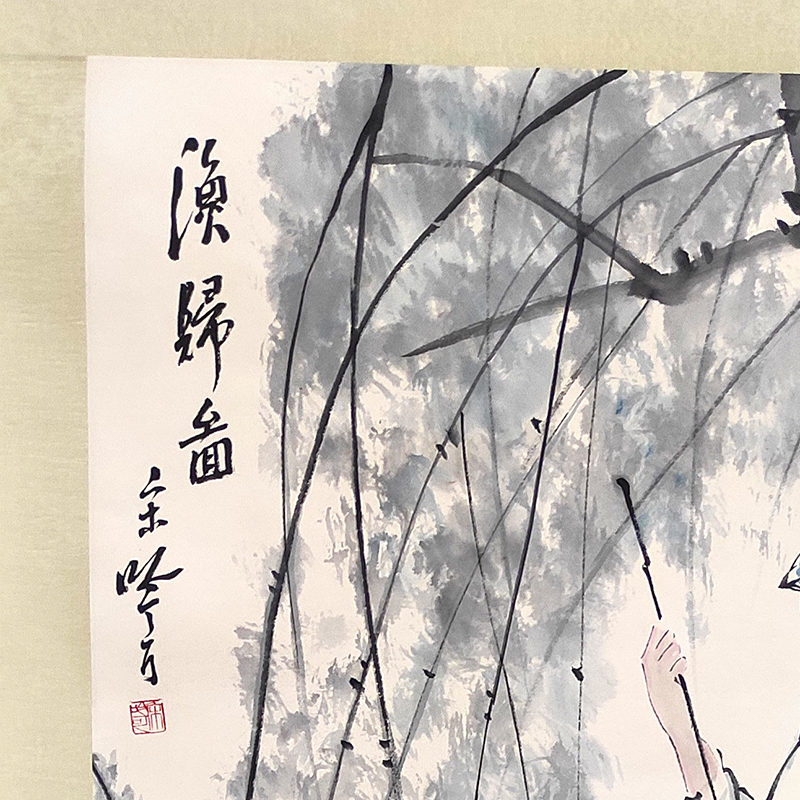 漁歸圖
宋吟可